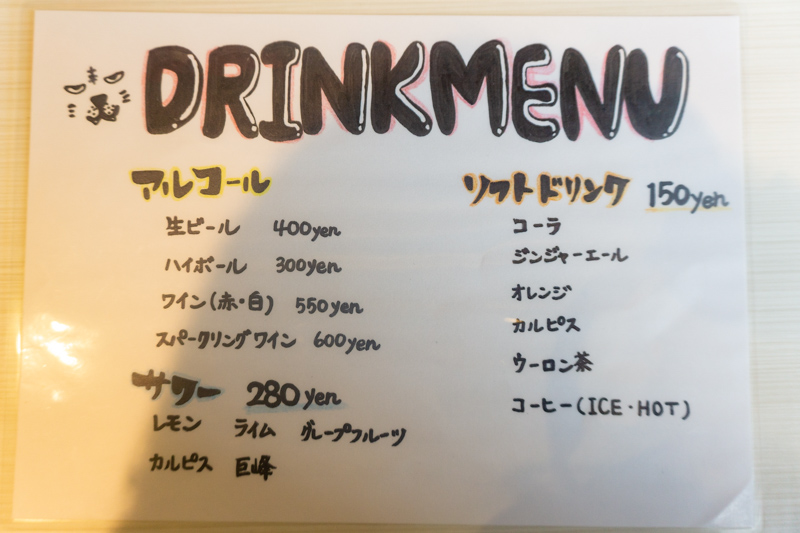 DRINKMENU
アルコール
生ビール 400yen
ハイボール 300yen
ワイン(赤・白) 550yen
スパークリングワイン 600yen
サワー 280yen
レモン ライム グループフルーツ
カルピス 巨峰
ソフトドリンク 150yen
コーラ
ジンジャーエール
オレンジ
カルピス
ウーロン茶
コーヒー(ICE・HOT)